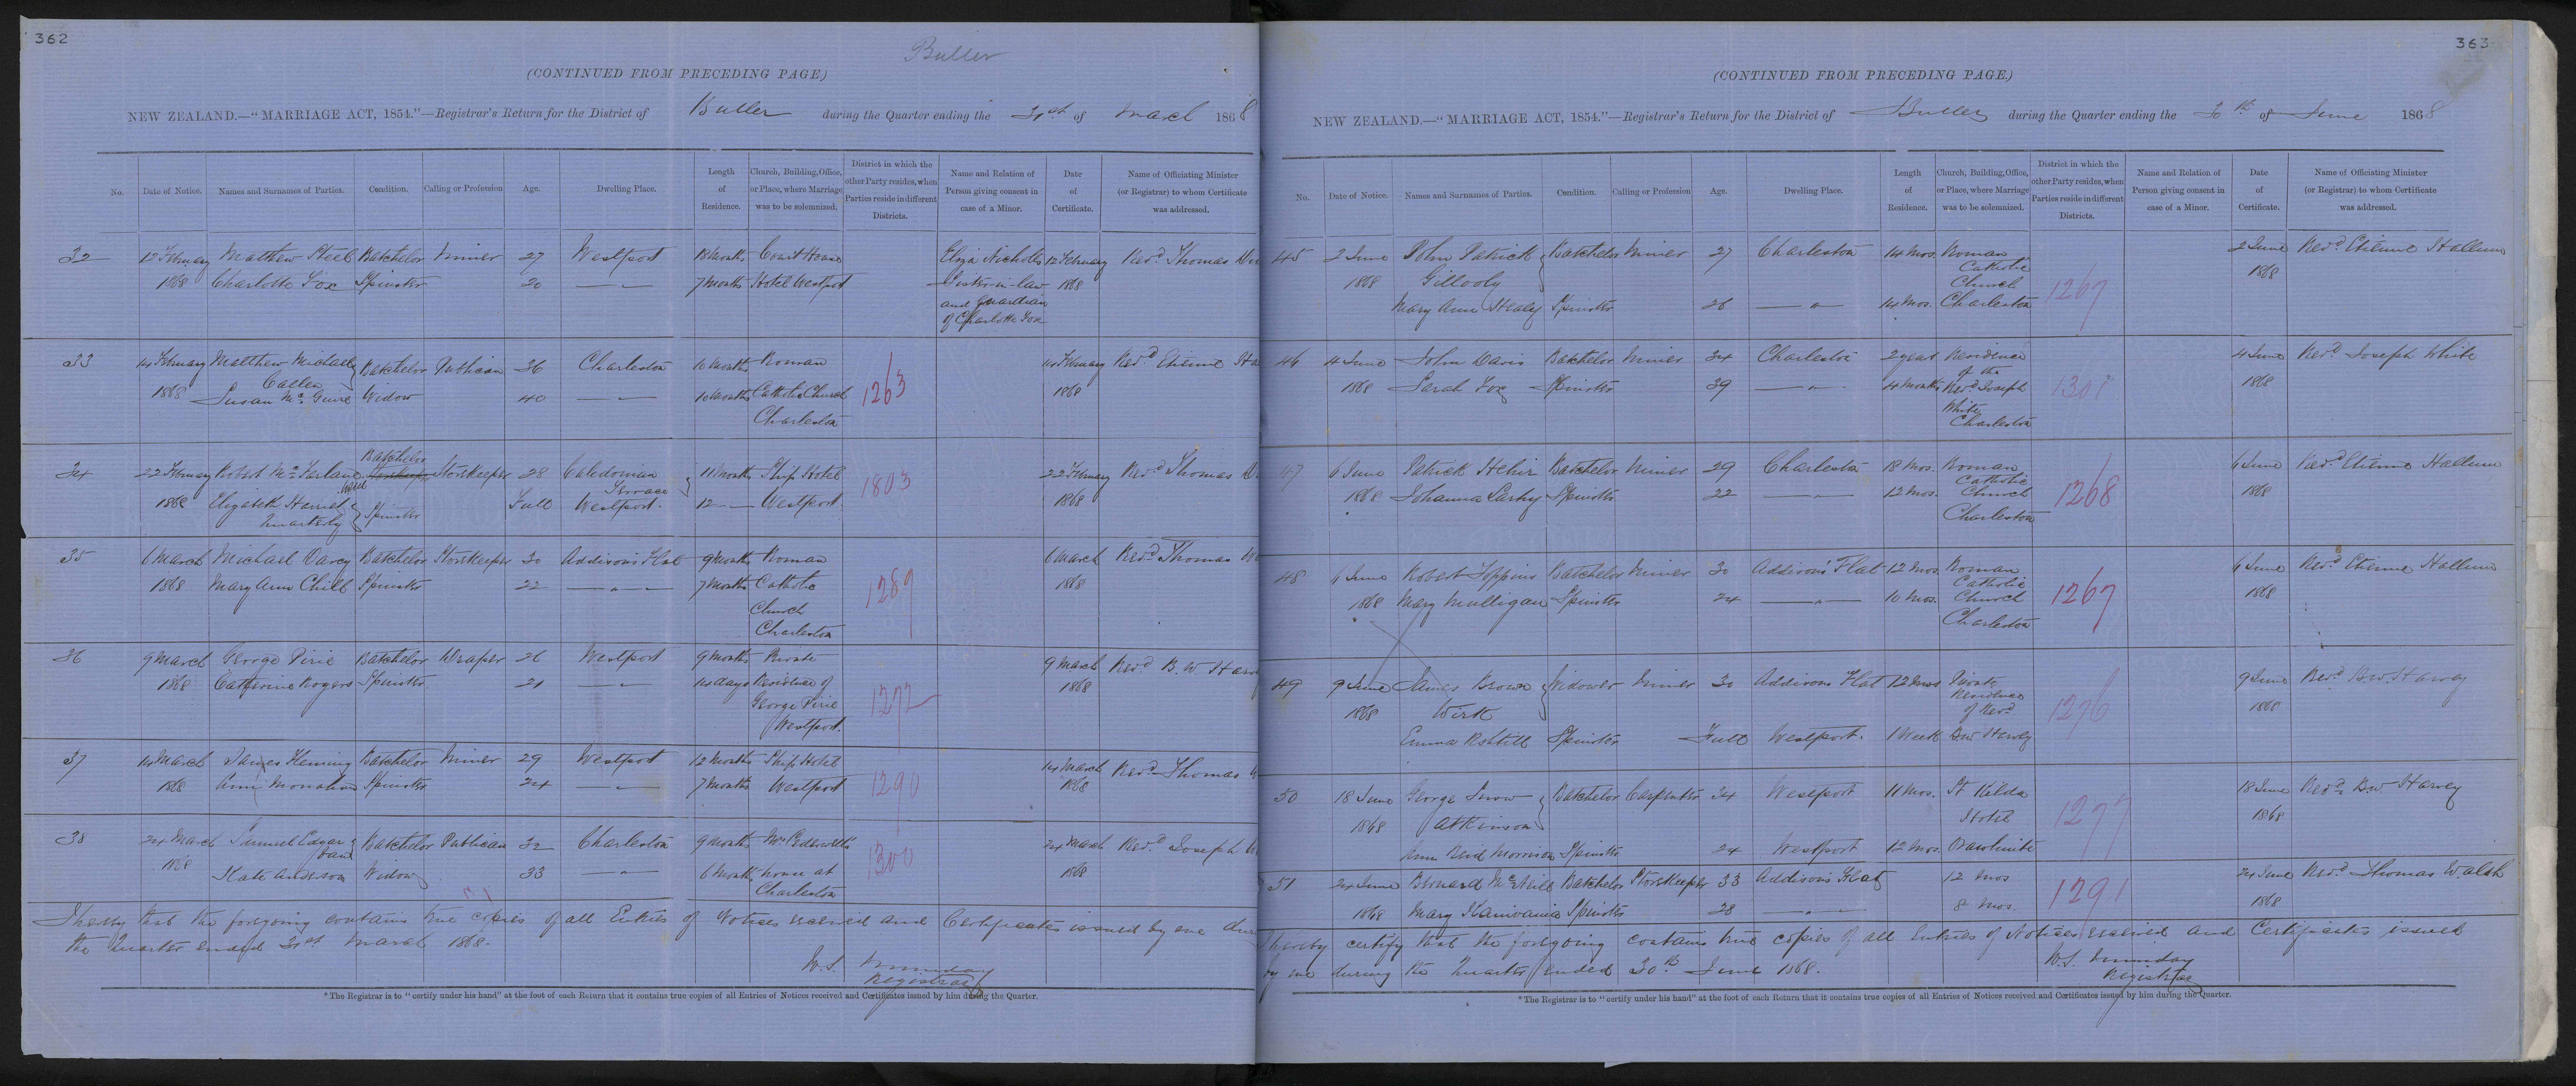 362
Buller
(CONTINUED FROM PRECEDING PAGE)
NEW ZEALAND.—"MARRIAGE ACT, 1854."—Registrar's Return for the District of Buller during the Quarter ending the 31st of March 1868
No. Date of Notice. Names and Surnames of Parties. Condition. Calling or Profession Age. Dwelling Place. Length of Residence. Church, Building, Office, or Place, where Marriage was to be solemnized. District in which the other Party resides, when Parties reside in different Districts. Name and Relation of Person giving consent in case of a Minor. Date of Certificate. Name of Officiating Minister (or Registrar) to whom Certificate was addressed.
32 12 February Matthew Steel Batchelor Miner 27 Westport Months Court House Eliza Nicholls 12 February Revd. Thomas
1868 Charlotte Fox Spinster 20 — " — 7 Months Hotel Westport Sister-in-law 1868
and Guardian
of Charlotte Fox
33 14 February Matthew Michael Batchelor Publican 36 Charleston 10 Months Roman 14 February Revd Etienne
Callen 1263
1868 Susan Mc Guire Widow 40 — " — 10 Months Catholic Church 1868
Charleston
34 22 February Robert Mc Farlane Batchelor Storekeeper 28 Caledonian 11 Months Ship Hotel 1803 22 February Revd Thomas
Terrace
1868 Elizabeth Harriet Spinster Full Westport. 12 — Westport. 1868
Quarterly
35 6 March Michael Darcy Batchelor Storekeeper 30 Addison's Flat 9 Months Roman 6 March Revd Thomas
1868 Mary Ann Chill Spinster 22 — " — 7 Months Catholic 1289 1868
Church
Charleston
36 9 March George Pirie Batchelor Draper 26 Westport 9 Months Private 9 March Revd B. W Harv
1868 Catherine Rogers Spinster. 21 — " — 14 days Residence of 1272 1868
George Pirie
Westport.
37 14 March James Fleming Batchelor Miner 29 Westport 12 Months Ship Hotel 14 March Revd Thomas
1868 Ann Monahan Spinster 24 — " — 7 Months Westport 1290 1868
38 24 March Samuel Edgar Batchelor Publican 32 Charleston 9 Months Mrs 24 March Revd. Joseph
1868 Kate Anderson Widow 33 — " — 6 Months house at 1300 1868
Charleston
I hereby that the foregoing contains true copies of all Entries of Notices received and Certificates issued by me
the Quarter ended 31st March 1868.
W. S. Munday
Registrar
*The Registrar is to "certify under his hand" at the foot of each Return that it contains true copies of all Entries of Notices received and Certificates issued by him during the Quarter.
363
(CONTINUED FROM PRECEDING PAGE.)
NEW ZEALAND.—"MARRIAGE ACT, 1854."—Registrar's Return for the District of Buller during the Quarter ending the 30th of June 1868
No. Date of Notice. Names and Surnames of Parties. Condition. Calling or Profession Age. Dwelling Place. Length of Residence. Church, Building, Office, or Place, where Marriage was to be solemnized. District in which the other Party resides, when Parties reside in different Districts. Name and Relation of Person giving consent in case of a Minor. Date of Certificate. Name of Officiating Minister (or Registrar) to whom Certificate was addressed.
45 2 June John Patrick Batchelor Miner 27 Charleston 14 Mos. Roman 2 June Revd. Etienne Hallum
Catholic
1868 Gillooly Church 1267 1868
Mary Ann Healy Spinster 26 — " 14 Mos. Charleston
46 4 June John Davis Batchelor Miner 34 Charleston 2 years Residence 4 June Revd. Joseph White
of the
1868 Sarah Fox Spinster 39 — " — 4 Months Revd. Joseph 1301 1868
White
Charleston
47 6 June Patrick Hehir Batchelor Miner 29 Charleston 18 Mos. Roman 6 June Revd Etienne Hallum
Catholic
1868 Johanna Spinster 22 — " — 12 Mos. Church 1268 1868
Charleston
48 6 June Robert Toppins Batchelor Miner 30 Addison's Flat 12 Mos. Roman 6 June Revd. Etienne Hallum
Catholic
1868 Mary Mulligan Spinster 24 — " — 10 Mos. Church 1267 1868
Charleston
49 9 June James Brown Widower Miner 30 Addison's Flat 12 Mos Private 9 June Revd B.W. Harvey
Residence
1868 Wirk of Revd 1276 1868
Emma Spinster Full Westport. 1 Week B.W Harvey
50 18 June George Snow Batchelor Carpenter 34 Westport 11 Mos. St Kilda 18 June Revd. B.W. Harvey
1868 Atkinson Hotel 1277 1868
Ann Reid Morrison Spinster 24 Westport 12 Mos.
51 24 June Bernard McNeill Batchelor Storekeeper 33 Addison's Flat 12 Mos 24 June Revd. Thomas Walsh
1868 Mary Spinster 28 — " — 8 Mos. 1291 1868
I hereby certify that the foregoing contains true copies of all Entries of Notices received and Certificates issued
by me during the Quarter ended 30th June 1868.
W. S. Munday
Registrar
*The Registrar is to "certify under his hand" at the foot of each Return that it contains true copies of all Entries of Notices received and Certificates issued by him during the Quarter.